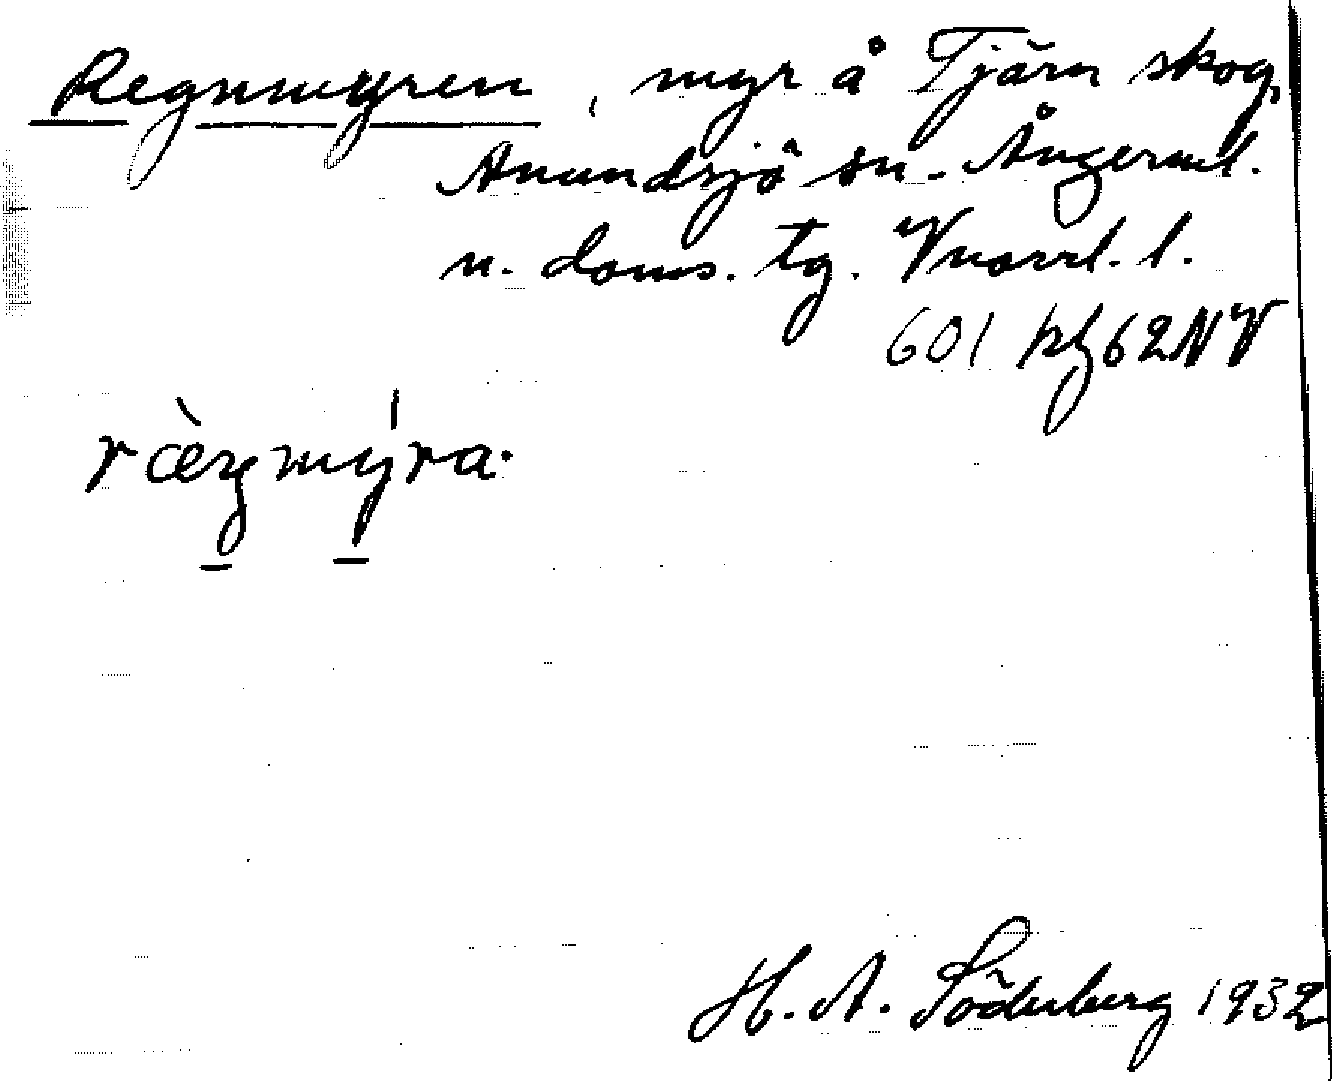 Regnmyren, myr å Tjärn skog,
Anundsjö sn. Ångerml.
n. doms. tg. Vnorrl. l.
601 kbl 62NV
ræ̀ŋmýra.
H. A. Söderberg 1932